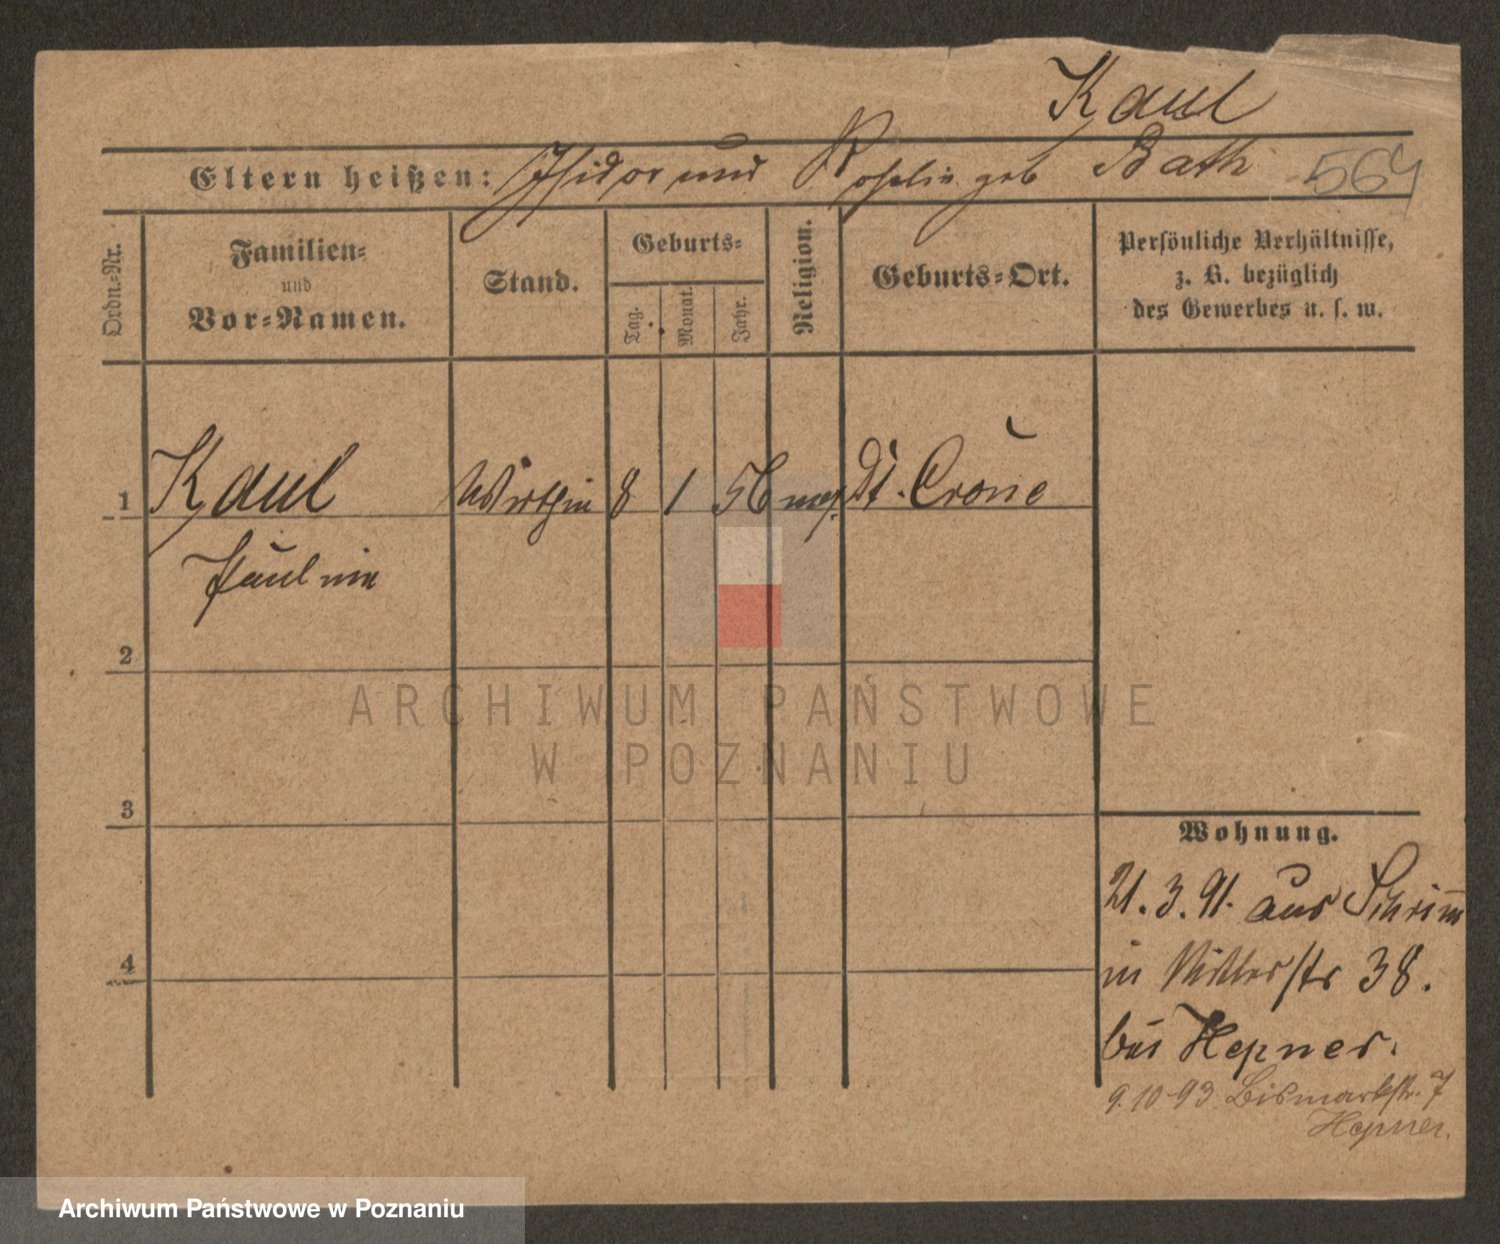 Kaul
Eltern heißen: Isidor und Rosalie geb Bath 564
Ordn.=Nr.
Familien=
und
Vor=Namen.
Stand.
Geburts=
Tag.
Monat.
Jahr.
Religion.
Geburts=Ort.
Persönliche Verhältnisse,
z. B. bezüglich
des Gewerbes u. s. w.
1 Kaul Wirthin 8 1 56 mos. Dt. Crone
Pauline
2
3
4
ARCHIWUM PAŃSTWOWE
W POZNANIU
Wohnung.
21.3.91. aus Schrimm
in Ritterstr 38.
bei Hepner.
9.10.93 Bismarkstr. 7
Hepner.
Archiwum Państwowe w Poznaniu